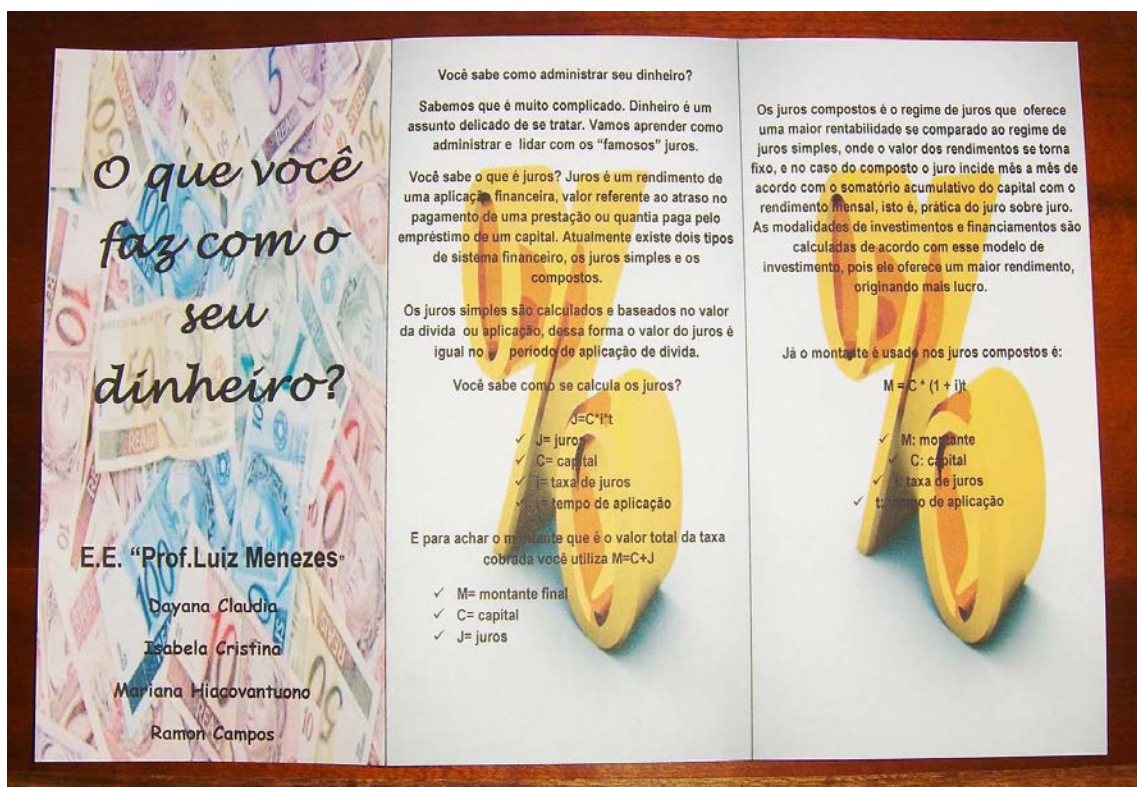 O que você
faz com o
seu
dinheiro?
E.E. “Prof.Luiz Menezes”
Dayana Claudia
Isabela Cristina
Mariana Hiacovantuono
Ramon Campos
Você sabe como administrar seu dinheiro?
Sabemos que é muito complicado. Dinheiro é um
assunto delicado de se tratar. Vamos aprender como
administrar e lidar com os “famosos” juros.
Você sabe o que é juros? Juros é um rendimento de
uma aplicação financeira, valor referente ao atraso no
pagamento de uma prestação ou quantia paga pelo
empréstimo de um capital. Atualmente existe dois tipos
de sistema financeiro, os juros simples e os
compostos.
Os juros simples são calculados e baseados no valor
da divida ou aplicação, dessa forma o valor do juros é
igual no período de aplicação de divida.
Você sabe como se calcula os juros?
J=C*i*t
✓ J= juros
✓ C= capital
✓ i= taxa de juros
✓ t= tempo de aplicação
E para achar o montante que é o valor total da taxa
cobrada você utiliza M=C+J
✓ M= montante final
✓ C= capital
✓ J= juros
Os juros compostos é o regime de juros que oferece
uma maior rentabilidade se comparado ao regime de
juros simples, onde o valor dos rendimentos se torna
fixo, e no caso do composto o juro incide mês a mês de
acordo com o somatório acumulativo do capital com o
rendimento mensal, isto é, prática do juro sobre juro.
As modalidades de investimentos e financiamentos são
calculadas de acordo com esse modelo de
investimento, pois ele oferece um maior rendimento,
originando mais lucro.
Já o montante é usado nos juros compostos é:
M = C * (1 + i)t
✓ M: montante
✓ C: capital
✓ i: taxa de juros
✓ t: tempo de aplicação